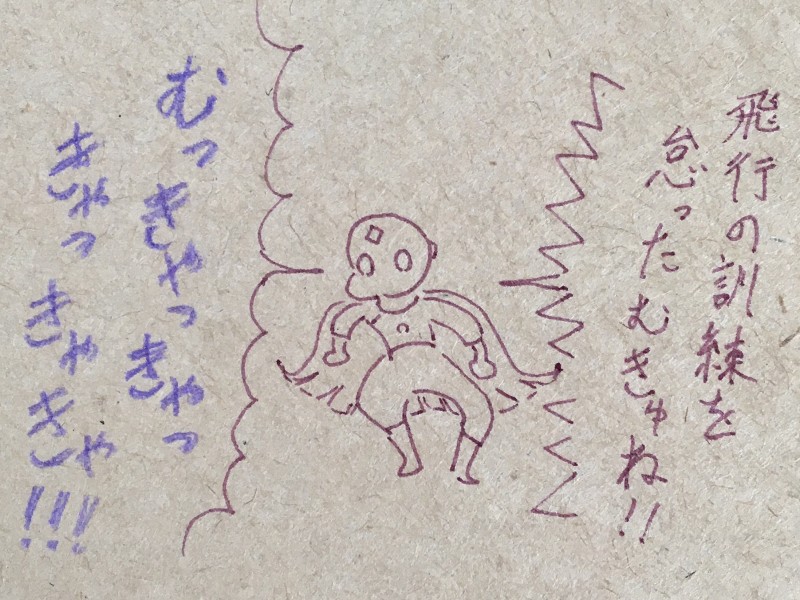 飛行の訓練を
怠ったむきゅね!!
むっきゃっきゃっ
きゃっきゃきゃ!!!